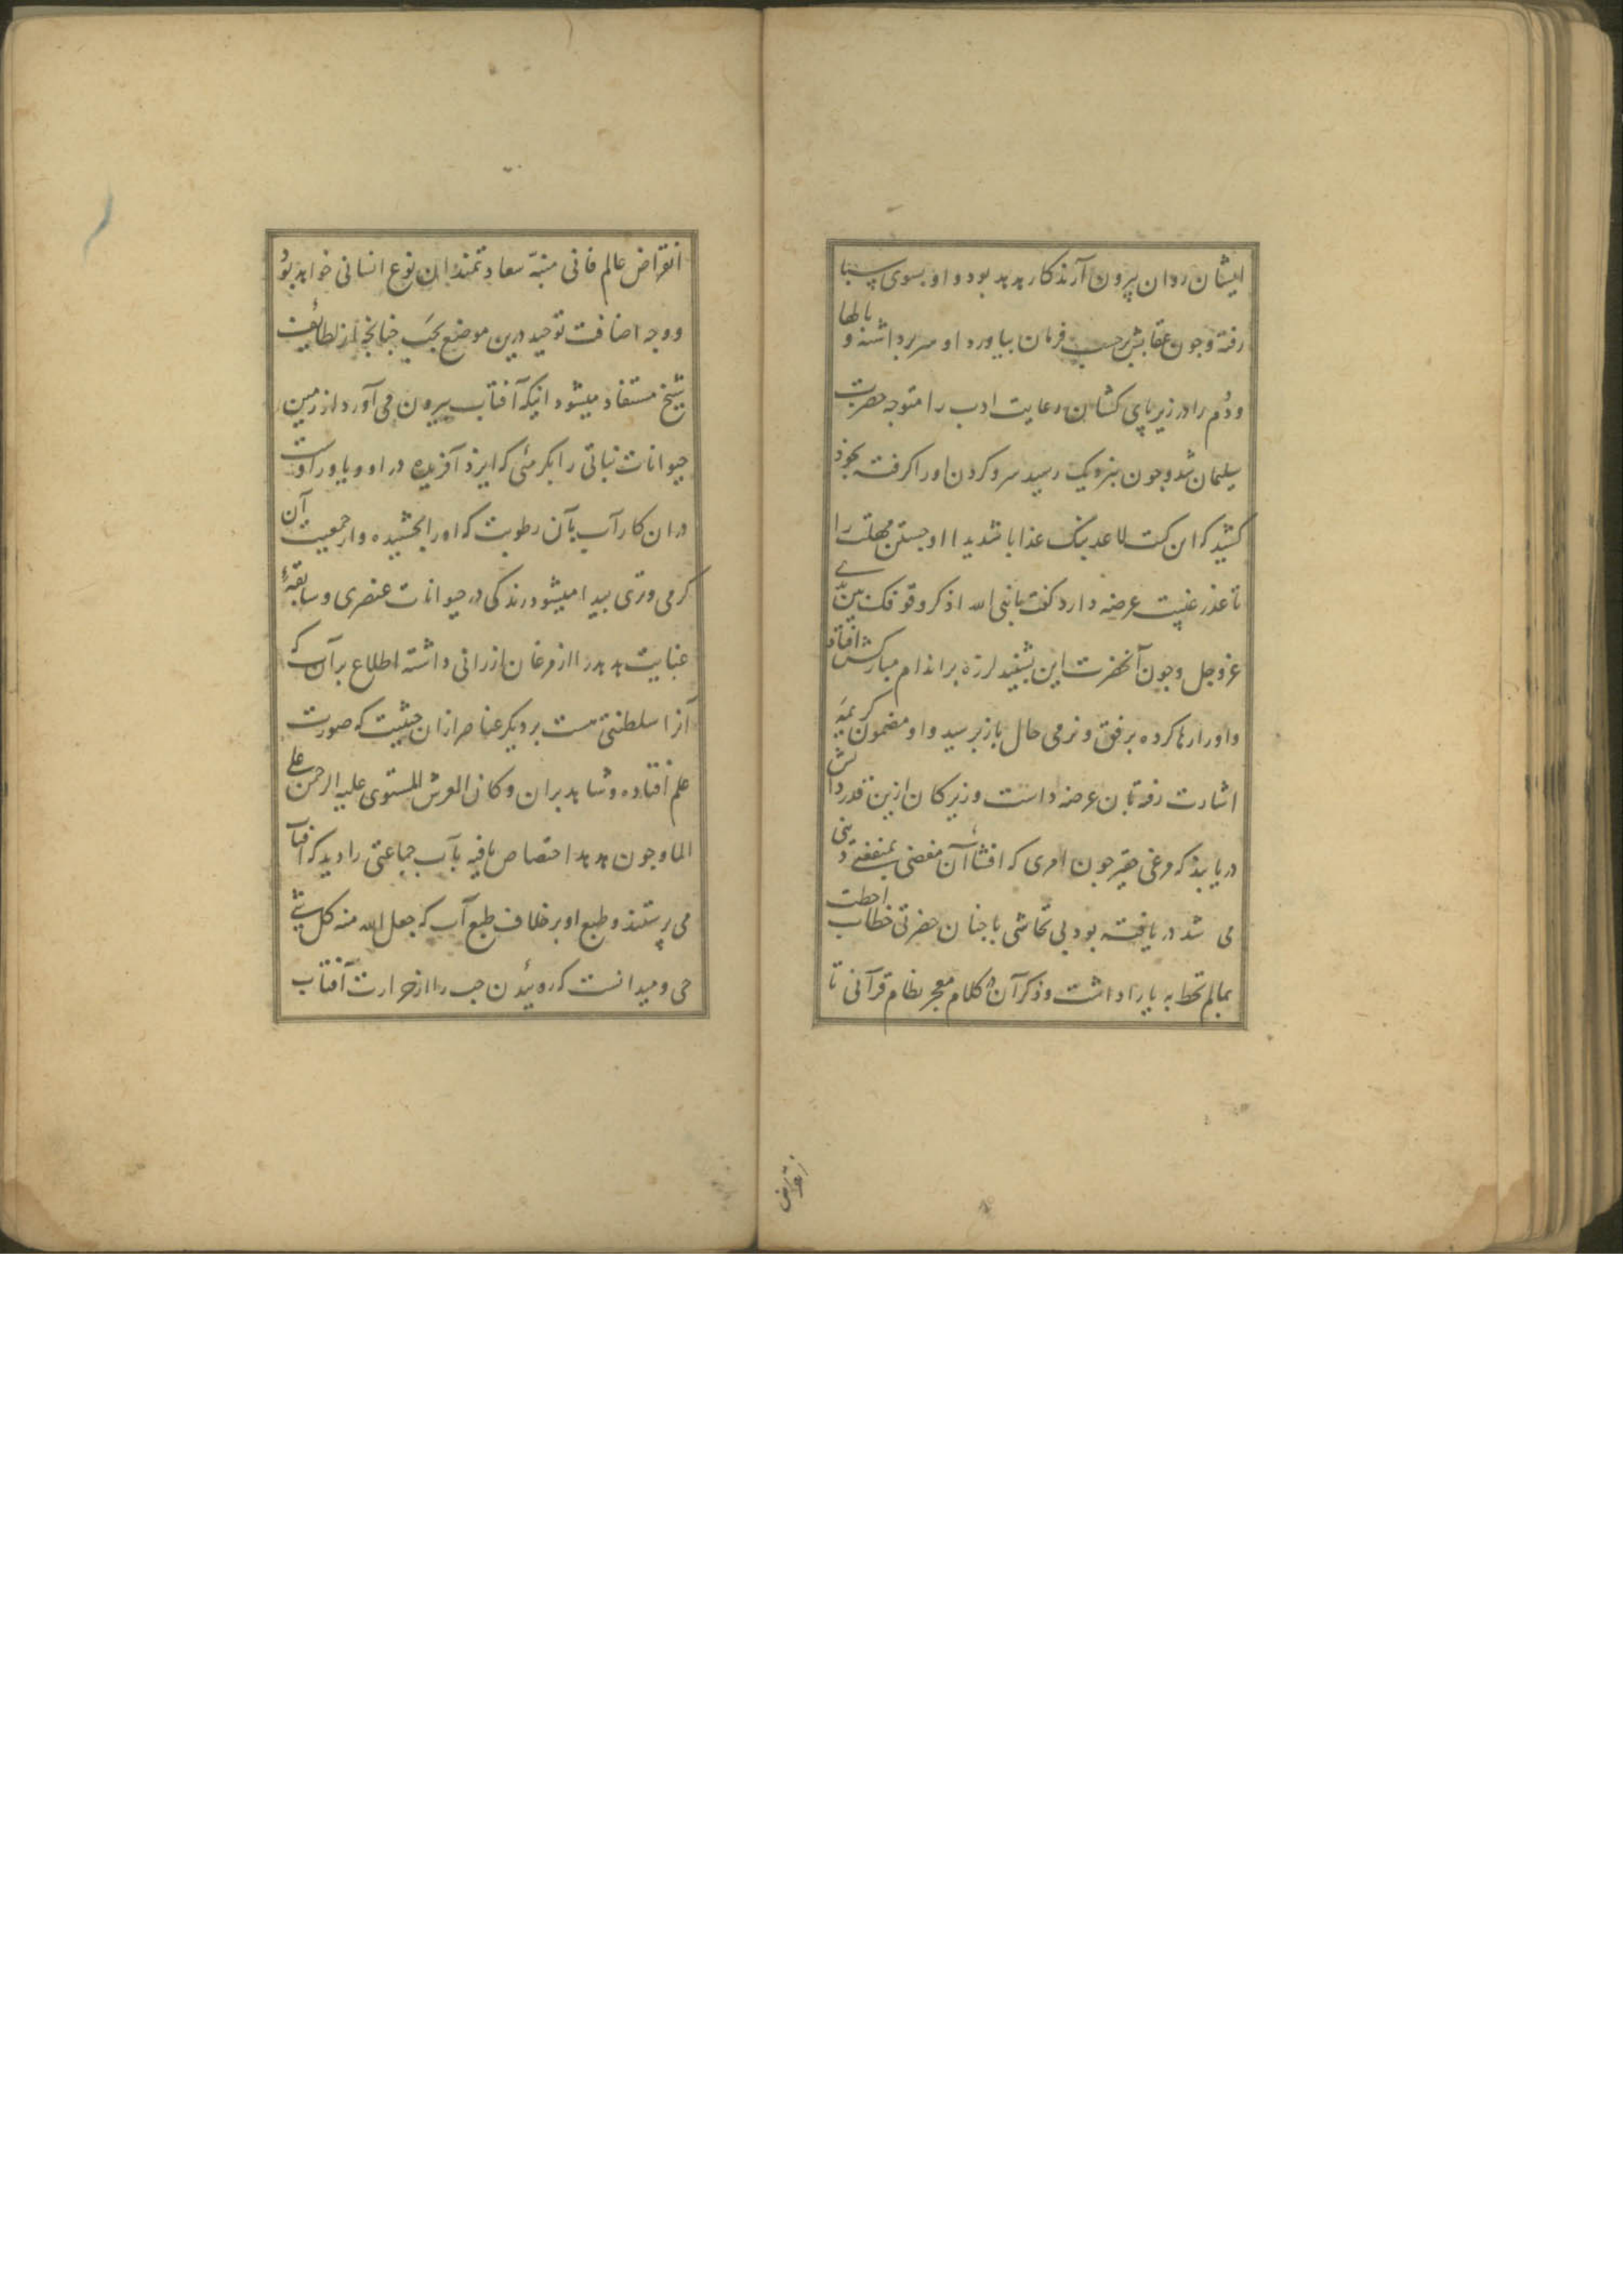 ایشان روان بیرون آرند کار هدهد بود و او بسوی سبا
رفته و چون عقابش بر حسب فرمان بیاورد او سر برداشته و بالها
و دُم را در زیر پای کشان رعایت ادب را متوجه حضرت
سلیمان شد و جون بنزدیک رسید سر و کردن او را کرفته بخود
کشید که این کیت لاعذبنک عذابا شدیدا او جستن مهلت را
تا عذر غیبت عرضه دارد کفت یا نبی الله اذکر وقوفک بین یدی
عز و جل و جون آنحضرت این بشنید لرزه بر اندام مبارکش افتاد
و او را رها کرده برفق و نرمی حال باز پرسید و او مضمون کریمه
اشارت رفته بآن عرضه داشت و زیرکان ازین قدر دانش
دریابند که مرغی حقیر جون امری که افشاء آن مفضی بمنفعتی دینی
می شد دریافته بود بی تحاشی با جنان حضرتی خطاب احطت
بمالم تحط به یارا داشت و ذکر آن در کلام معجز نظام قرآنی تا
انقراض
انقراض عالم فانی منبّه سعادتمندان نوع انسانی خواهد بود
و وجه اضافت توحید درین موضع بخبَ جنانجه از لطائف
شیخ مستفاد میشود اینکه آفتاب بیرون می آورد از زمین
حیوانات نباتی را بکرمئی که ایزد آفریده در او و یاور اوست
در ان کار آب بآن رطوبت که او را بخشیده و از جمعیت آن
کرمی و تری پیدا میشود زندکی در حیوانات عنصری و سابقهٔ
عنایت هدهد را از مرغان ارزانی داشته اطلاع بر آب که
آنرا سلطنتی هست بر دیکر عناصر ازان حیثیت که صورت
علم افتاده و شاهد بران و کان العرش للمستوی علیه الرحمن علی
الماء و جون هدهد اختصاص یافته بآب جماعتی را دید که آفتاب
می پرستند و طبع او بر خلاف طبع آب که جعل الله منه کل شیء
حی و میدانست که روئیدن حب را از حرارت آفتاب